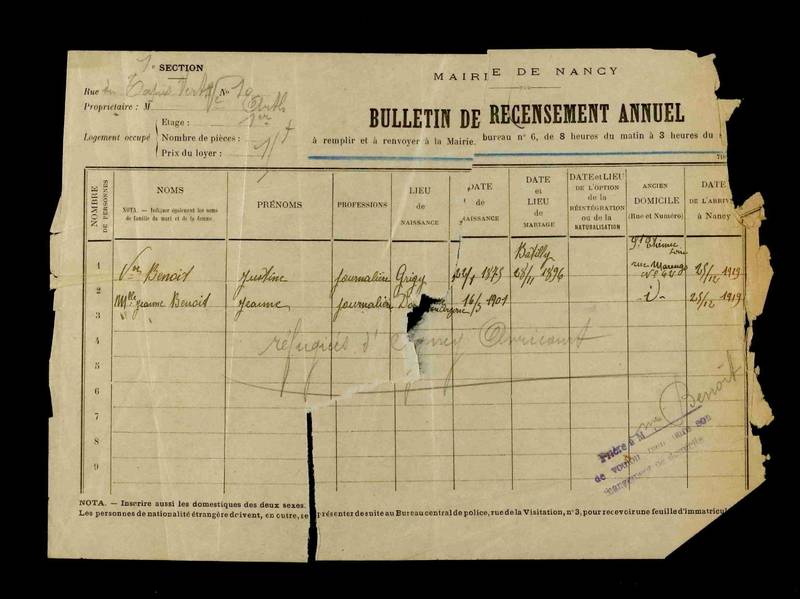 1e SECTION
Rue du Tapis Vert No 10
Propriétaire : M
Logement occupé
Etage : 1er
Nombre de pièces :
Prix du loyer :
MAIRIE DE NANCY
BULLETIN DE RECENSEMENT ANNUEL
à remplir et à renvoyer à la Mairie, bureau no 6, de 8 heures du matin à 3 heures du
NOMBRE DE PERSONNES
NOMS
NOTA. — Indiquer également les noms de famille du mari et de la femme.
PRÉNOMS
PROFESSIONS
LIEU de NAISSANCE
DATE de NAISSANCE
DATE et LIEU de MARIAGE
DATE et LIEU DE L'OPTION de la RÉINTÉGRATION ou de la NATURALISATION
ANCIEN DOMICILE (Rue et Numéro)
DATE DE L'ARRIV à Nancy
1 Vve Benoit Justine journalière Grigy 1875 Batilly 28/11 1896 25/12 1919
2
3 Mlle Jeanne Benoit Jeanne journalière 16/5 1901 -id- 25/12 1919
4 réfugiés d' Avricourt
5
6
7
8
9
Benoît
Prière à M
de vouloir bien faire son
changement de domicile
NOTA. — Inscrire aussi les domestiques des deux sexes.
Les personnes de nationalité étrangère doivent, en outre, se présenter de suite au Bureau central de police, rue de la Visitation, no 3, pour recevoir une feuille d'immatricul